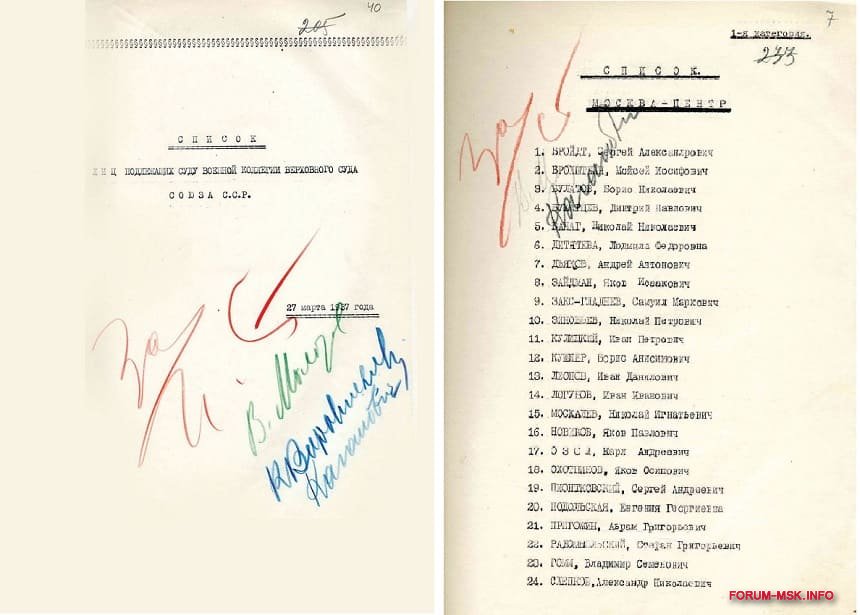 205
40
С П И С О К
ЛИЦ ПОДЛЕЖАЩИХ СУДУ ВОЕННОЙ КОЛЛЕГИИ ВЕРХОВНОГО СУДА
СОЮЗА С.С.Р.
27 марта 1937 года
За
В. Молотов
К Ворошилов
Каганович
7
1-я категория.
233
С П И С О К.
МОСКВА-ЦЕНТР
За
Каганович
1. БРОЙДТ, Сергей Александрович
2. Моисей Иосифович
3. БУЛАТОВ, Борис Николаевич
4. Дмитрий Павлович
5. ВАНАГ, Николай Николаевич
6. ДИТЯТЕВА, Людмила Федоровна
7. ДЬЯКОВ, Андрей Антонович
8. ЗАЙДМАН, Яков Исаакович
9. ЗАКС-ГЛАДНЕВ, Самуил Маркович
10. ЗИНОВЬЕВ, Николай Петрович
11. КУЛИЦКИЙ, Иван Петрович
12. КУШНЕР, Борис Анисимович
13. ЛЕОНОВ, Иван Данилович
14. ЛОГУНОВ, Иван Иванович
15. МОСКАЛЕВ, Николай Игнатьевич
16. НОВИКОВ, Яков Павлович
17. О З О Л, Карл Андреевич
18. ОХОТНИКОВ, Яков Осипович
19. ПИОНТКОВСКИЙ, Сергей Андреевич
20. ПОДОЛЬСКАЯ, Евгения Георгиевна
21. ПРИГОЖИН, Абрам Григорьевич
22. Стефан Григорьевич
23. Владимир Семенович
24. СЛЕПКОВ, Александр Николаевич
FORUM-MSK.INFO